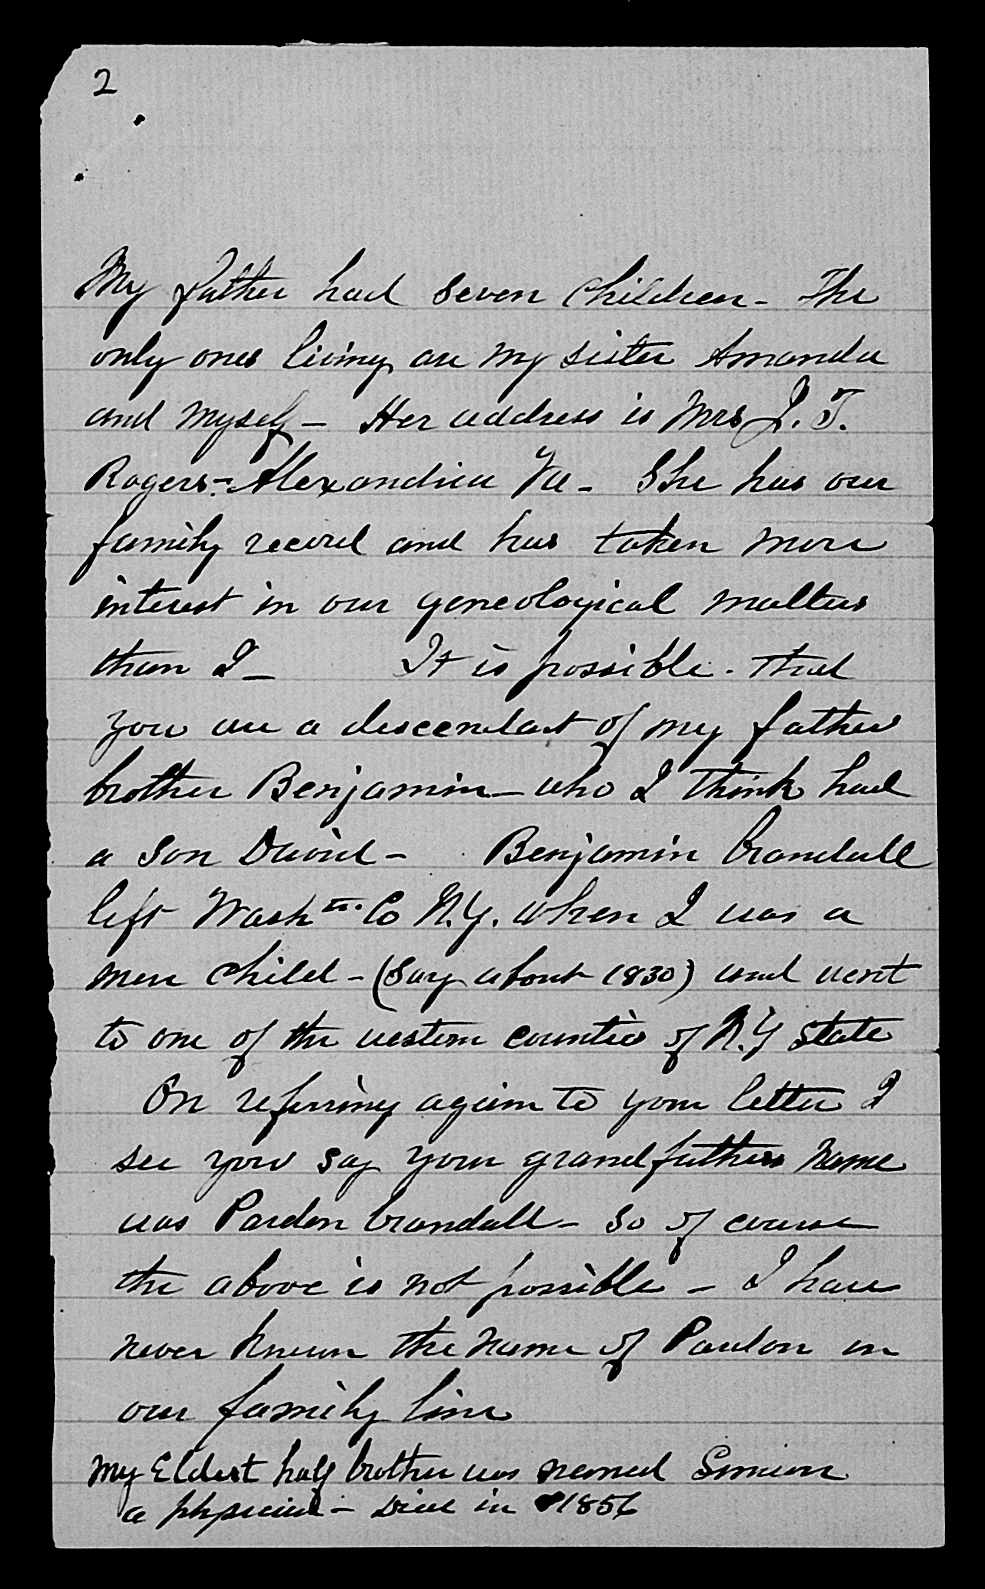 2
My father had seven children - The
only ones living are my sister Amanda
and myself - Her address is Mrs J. T.
Rogers - Alexandria Va - She has our
family record and has taken more
interest in our geneological matters
than I - It is possible. that
you are a descendant of my father
brother Benjamin - who I think had
a son David - Benjamin Crandall
left Washtn. Co N.Y. when I was a
mere child - (Say about 1830) and went
to one of the western counties of N.Y State
On referring again to your letter I
see you say your grandfathers name
was Pardon Crandall - So of course
the above is not possible - I have
never known the name of Pardon in
our family line
My Eldest half brother was named Simeon
a physician - Died in 1856